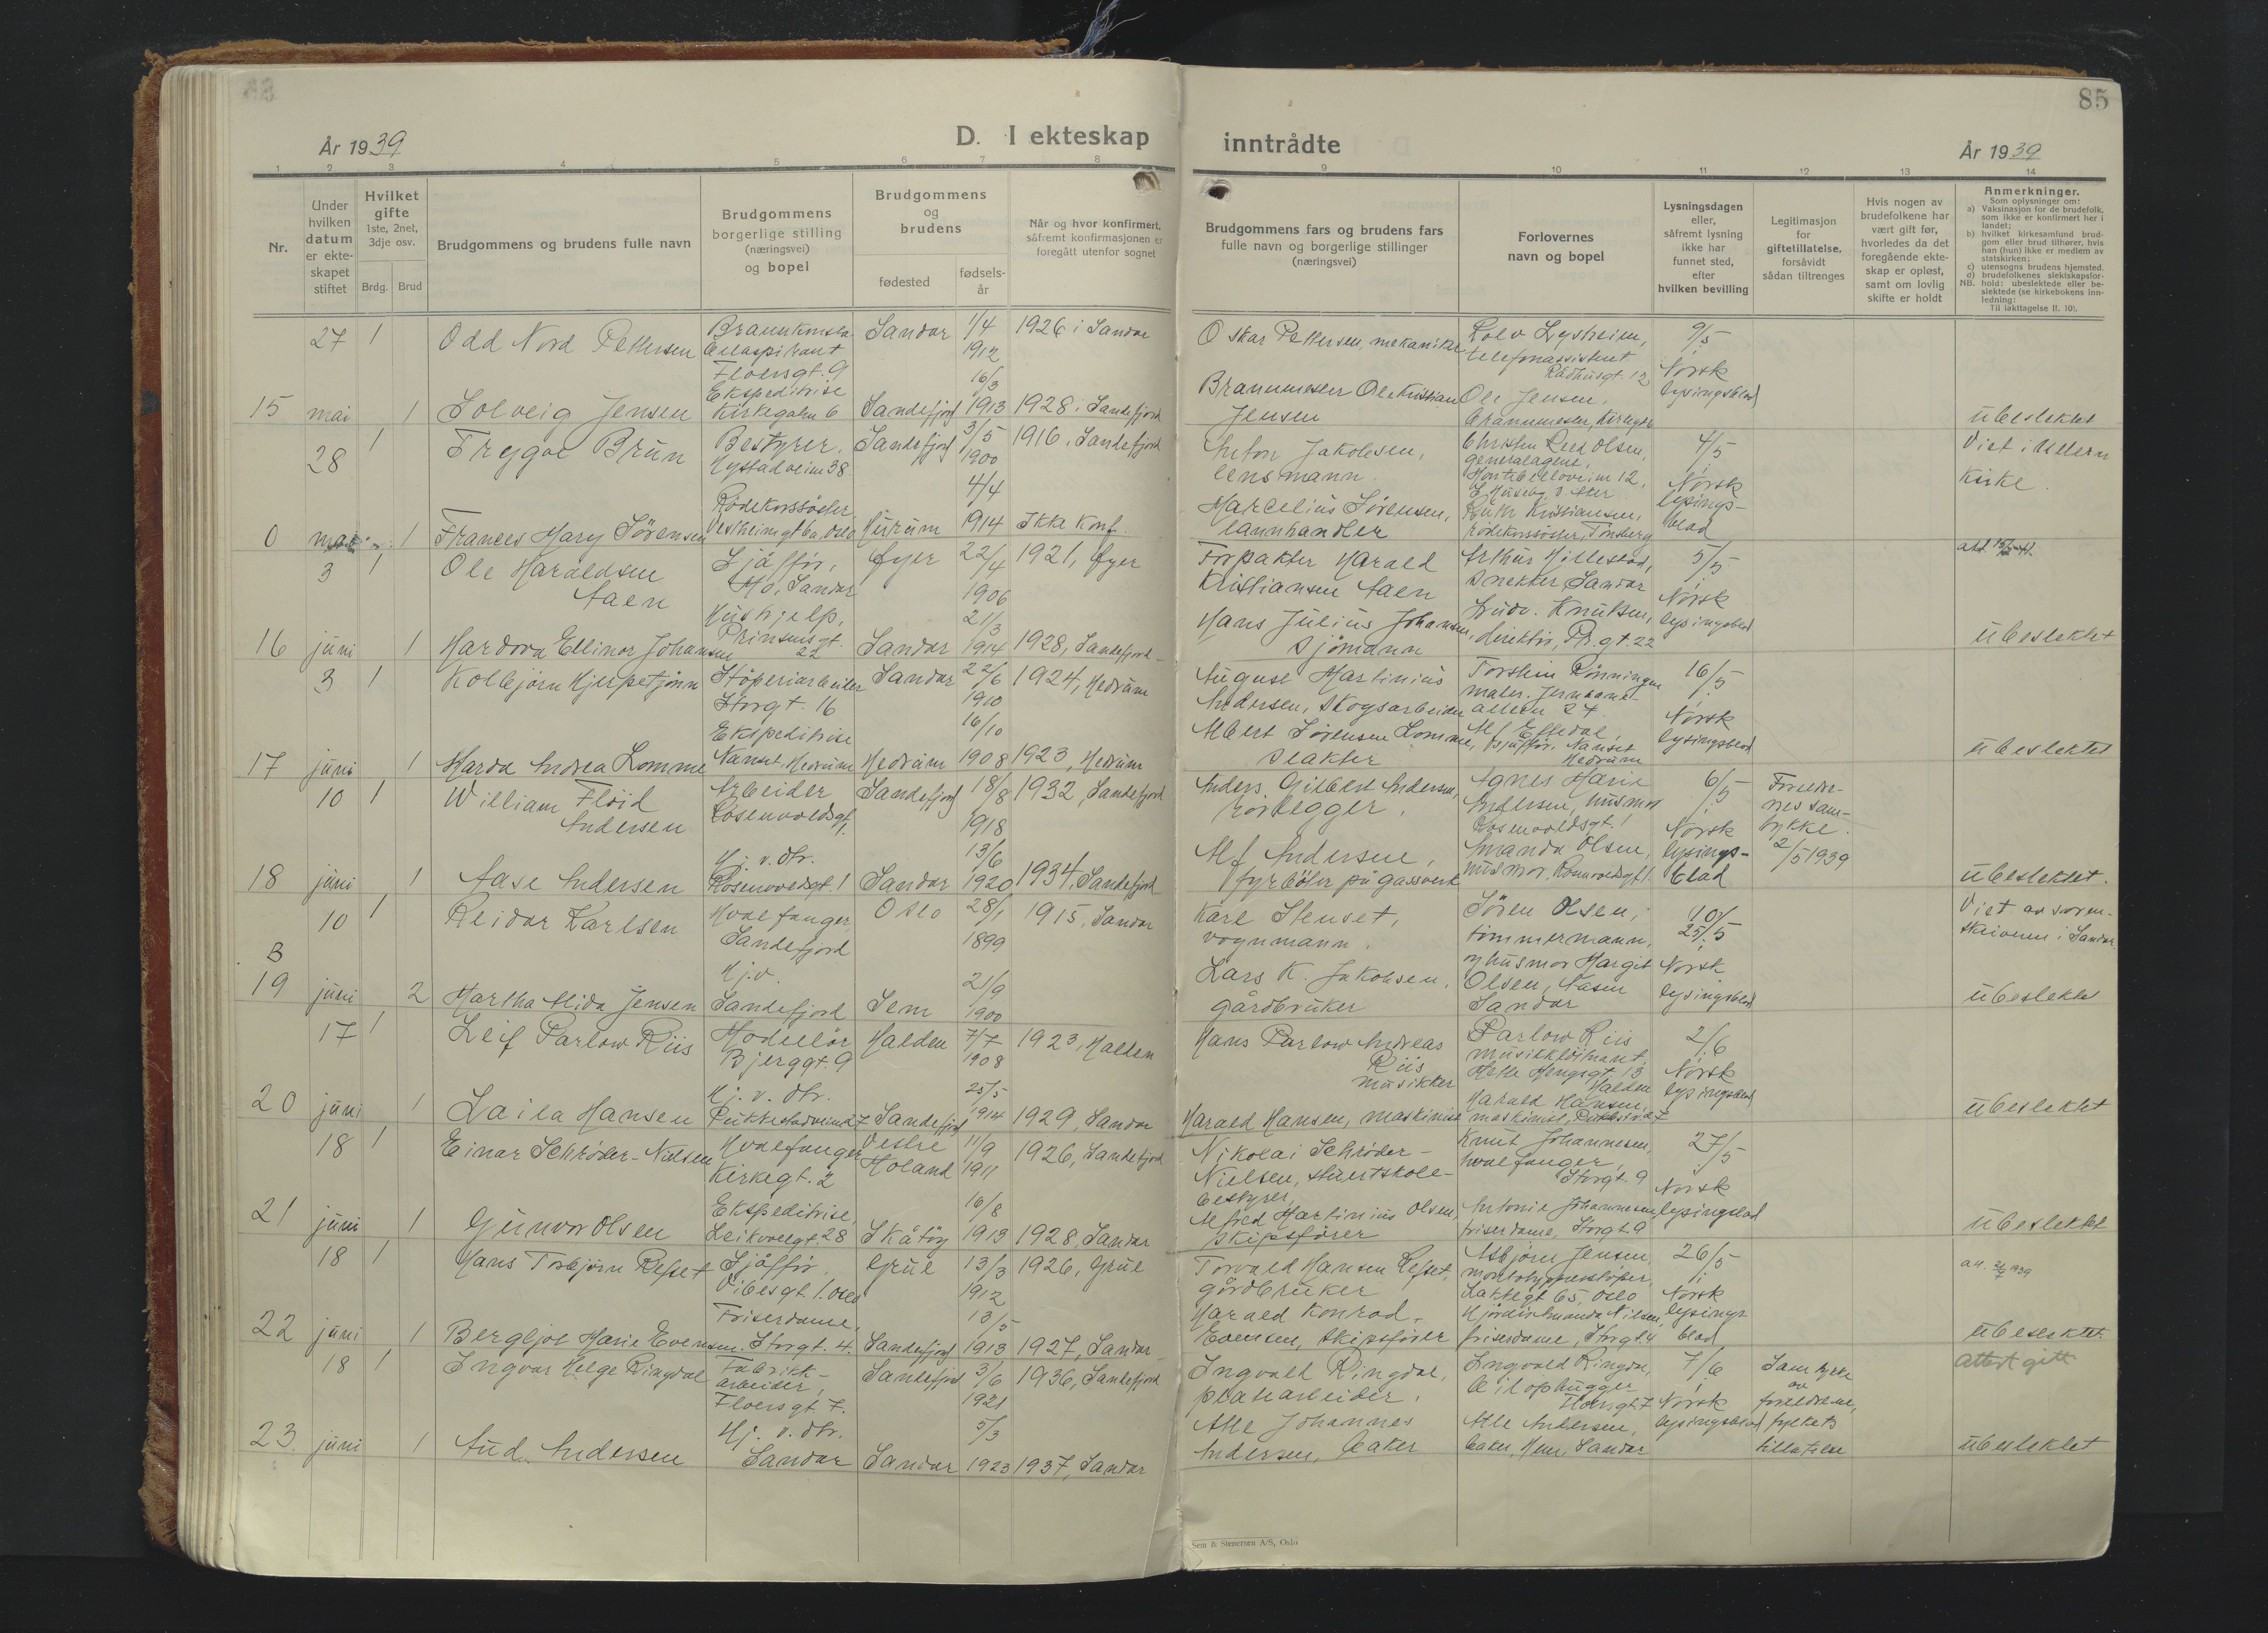 85
År 1939
D. I ekteskap
inntrådte
År 1939
1 2 3 4 5 6 7 8 9 10 11 12 13 14
Nr.
Under
hvilken
datum
er ekte-
skapet
stiftet
Hvilket
gifte
1ste, 2net,
3dje osv.
Brdg. Brud
Brudgommens og brudens fulle navn
Brudgommens
borgerlige stilling
(næringsvei)
og bopel
Brudgommens
og
brudens
fødested
fødsels-
år
Når og hvor konfirmert,
såfremt konfirmasjonen er
foregått utenfor sognet
Brudgommens fars og brudens fars
fulle navn og borgerlige stillinger
(næringsvei)
Forlovernes
navn og bopel
Lysningsdagen
eller,
såfremt lysning
ikke har
funnet sted,
efter
hvilken bevilling
Legitimasjon
for
giftetillatelse,
forsåvidt
sådan tiltrenges
Hvis nogen av
brudefolkene har
vært gift før,
hvorledes da det
foregående ekte-
skap er opløst,
samt om lovlig
skifte er holdt
Anmerkninger.
Som oplysninger om:
a) Vaksinasjon for de brudefolk,
som ikke er konfirmert her i
landet;
b) hvilket kirkesamfund brud-
gom eller brud tilhører, hvis
han (hun) ikke er medlem av
statskirken;
c) utensogns brudens hjemsted.
d) brudefolkenes slektskapsfor-
NB. hold: ubeslektede eller be-
slektede (se kirkebokens inn-
ledning:
Til iakttagelse II. 10).
27 1 Odd Nord Pettersen
Floersgt. 9
Sandar 1/4 1912
1926 i Sandar
Oskar Pettersen, mekaniker
Rolv Lysheim,
telefonassistent
Rådhusgt. 12
9/5
Norsk
lysingsblad
15 mai 1 Solveig Jensen
Ekspeditrise
Kirkegaten 6
Sandefjord 16/3 1913
1928 i Sandefjord
Brannmester Ole Kristian
Jensen
Ole Jensen,
ubeslektet
28 1 Trygve Brun
Bestyrer,
Hystadveien 38
Sandefjord 3/5 1900
1916, Sandefjord
Anton Jakobsen,
lensmann
Christen Reed Olsen,
generalagent,
Montebelloveien 12,
4/5
Norsk
lysings-
blad
Viet i Ullern
Kirke.
0 mai 1 Frances Mary Sörensen
Rödekorssöster
Vestheimgt 6a Oslo
Hurum 4/4 1914
Ikke Konf.
Marcelius Sörensen,
Ruth Kristiansen,
rödekorssöster, Tönsberg
3 1 Ole Haraldsen
Aaen
Sjåfför,
Mo, Sandar
Öyer 22/4 1906
1921, Öyer
Forpakter Harald
Kristiansen Aaen
Arthur Hillestad,
snekker Sandar
5/5
Norsk
lysingsblad
16 juni 1 Hardora Ellinor Johansen
Hushjelp,
Prinsensgt.
22
Sandar 21/3 1914
1928, Sandefjord
Hans Julius Johansen,
sjömann
Ludv. Knutsen,
direktör, Pr.gt. 22
ubeslektet
3 1 Kolbjörn Hjerpetjönn
Stöperiarbeider
Storgt. 16
Sandar 22/6 1910
1924, Hedrum
August Martinius
Andersen, skogsarbeider
Torstein Rönningen
maler. Jernbane-
alleen 24
16/5
Norsk
lysingsblad
17 juni 1 Marda Andrea Lomme
Ekspeditrise
Nanset, Hedrum
Hedrum 16/10 1908
1923, Hedrum
Albert Sörensen Lomme,
slakter
sjåfför. Nanset
Hedrum
ubeslektet
10 1 William Flöid
Andersen
Arbeider
Rosenvoldsgt. 1
Sandefjord 18/8 1918
1932, Sandefjord
Anders Gilbert Andersen,
rörlegger.
Agnes Marie
Andersen, husmor
Rosenvoldsgt. 1
6/5
Norsk
lysings-
blad
Foreldre-
nes sam-
tykke.
2/5 1939
18 juni 1 Aase Andersen
Hj. v. dtr.
Rosenvoldsgt. 1
Sandar 13/6 1920
1934, Sandefjord
Alf Andersen,
fyrböter på gassverk
Amanda Olsen,
husmor, Rosenvoldsgt 1.
ubeslektet.
10 1 Reidar Karlsen
Hvalfanger
Sandefjord
Oslo 28/1 1899
1915, Sandar
Karl Stenset,
vognmann.
Sören Olsen,
tömmermann,
og husmor Margit
Olsen, Nasen
Sandar
10/5
25/5
Norsk
lysingsblad
Viet av soren-
skriveren i Sandar.
B
19 juni 2 Martha Alida Jensen
Hj.v.
Sandefjord
Sem 21/9 1900
Lars K. Jakobsen,
gårdbruker
ubeslektet
17 1 Leif Parlow Riis
Modellör
Bjerggt. 9
Halden 7/7 1908
1923, Halden
Hans Parlow Andreas
Riis
musikker
Parlow Riis
musikklöitnant,
Halden
2/6
Norsk
lysingsblad
20 juni 1 Laila Hansen
Hj. v. dtr.
Pukkestadveien 27
Sandefjord 25/5 1914
1929, Sandar
Harald Hansen, maskinist
Harald Hansen
maskinist,
ubeslektet
18 1 Einar Schröder-Nielsen
Hvalfanger
Kirkegt. 2
Vestre
Höland 11/9 1911
1926, Sandefjord
Nikolai Schröder-
Nielsen,
bestyrer
Knut Johannesen,
hvalfanger,
Storgt. 9
27/5
Norsk
lysingsblad
21 juni 1 Gunvor Olsen
Ekspeditrise,
Leikvollgt. 28
Skåtöy 16/8 1913
1928, Sandar
Alfred Martinius Olsen,
skipsförer
Antonie Johannesen
friserdame, Storgt. 9
ubeslektet
18 1 Hans Torbjörn Refset
Sjåfför.
Vibesgt. 1. Oslo
Grue 13/3 1912
1926, Grue
Torvald Hansen Refset,
gårdbruker
Asbjörn Jensen
Lakkegt 65, Oslo
26/5
Norsk
lysings
blad
22 juni 1 Bergljot Marie Evensen
Friserdame,
Storgt. 4.
Sandefjord 13/5 1913
1927, Sandar
Harald Konrad
Evensen, skipsförer
Hjördis Amanda Nilsen,
friserdame, Storgt. 4
ubeslektet
18 1 Ingvar Helge Ringdal
Fabrikk-
arbeider,
Floersgt. 7.
Sandefjord 3/6 1921
1936, Sandefjord
Ingvald Ringdal,
platearbeider.
Ingvald Ringdal,
bilophugger
Floersgt. 7
7/6
Norsk
lysingsblad
Samtykke
av
foreldrene,
fylkets
tillatelse
Attest gitt
23 juni 1 Aud Andersen
Hj. v. dtr.
Sandar
Sandar 5/3 1923
1937, Sandar
Atle Johannes
Andersen, baker
Atle Andersen,
baker, Sandar
ubeslektet
Sem & Stenersen A/S, Oslo